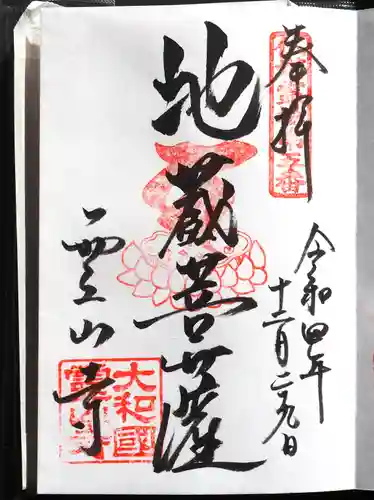 奉拝
令和四年
十二月二九日
地蔵菩薩
霊山寺
大和國
靈山寺